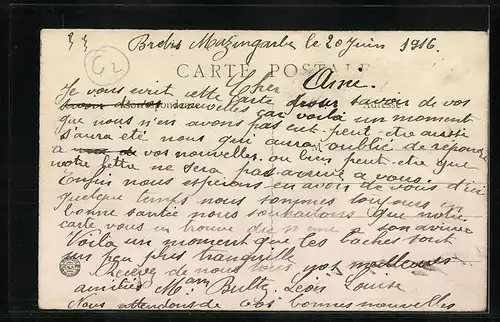 Mazingarbe le 20 Juin 1916.
CARTE POSTALE
Cher Ami.
Je vous écrit cette carte pour savoir de vos
nouvelles car voilà un moment
que nous n'en avons pas eut peut-etre aussi
s'aura été nous qui auront oublié de répondre
a vos nouvelles. ou bien peut-etre que
notre lettre ne sera pas arrivé a vous.
Enfin nous espérons en avoir de vous d'ici
quelque temps nous sommes toujours en
bonne santée nous souhaitons que notre
carte vous en trouve de meme a son arrivée
Voila un moment que les boches sont
un peu plus tranquille
Recevez de nous tous vos meilleures
amitiés Mam Bultz Léois Louise
Nous attendons de vos bonnes nouvelles